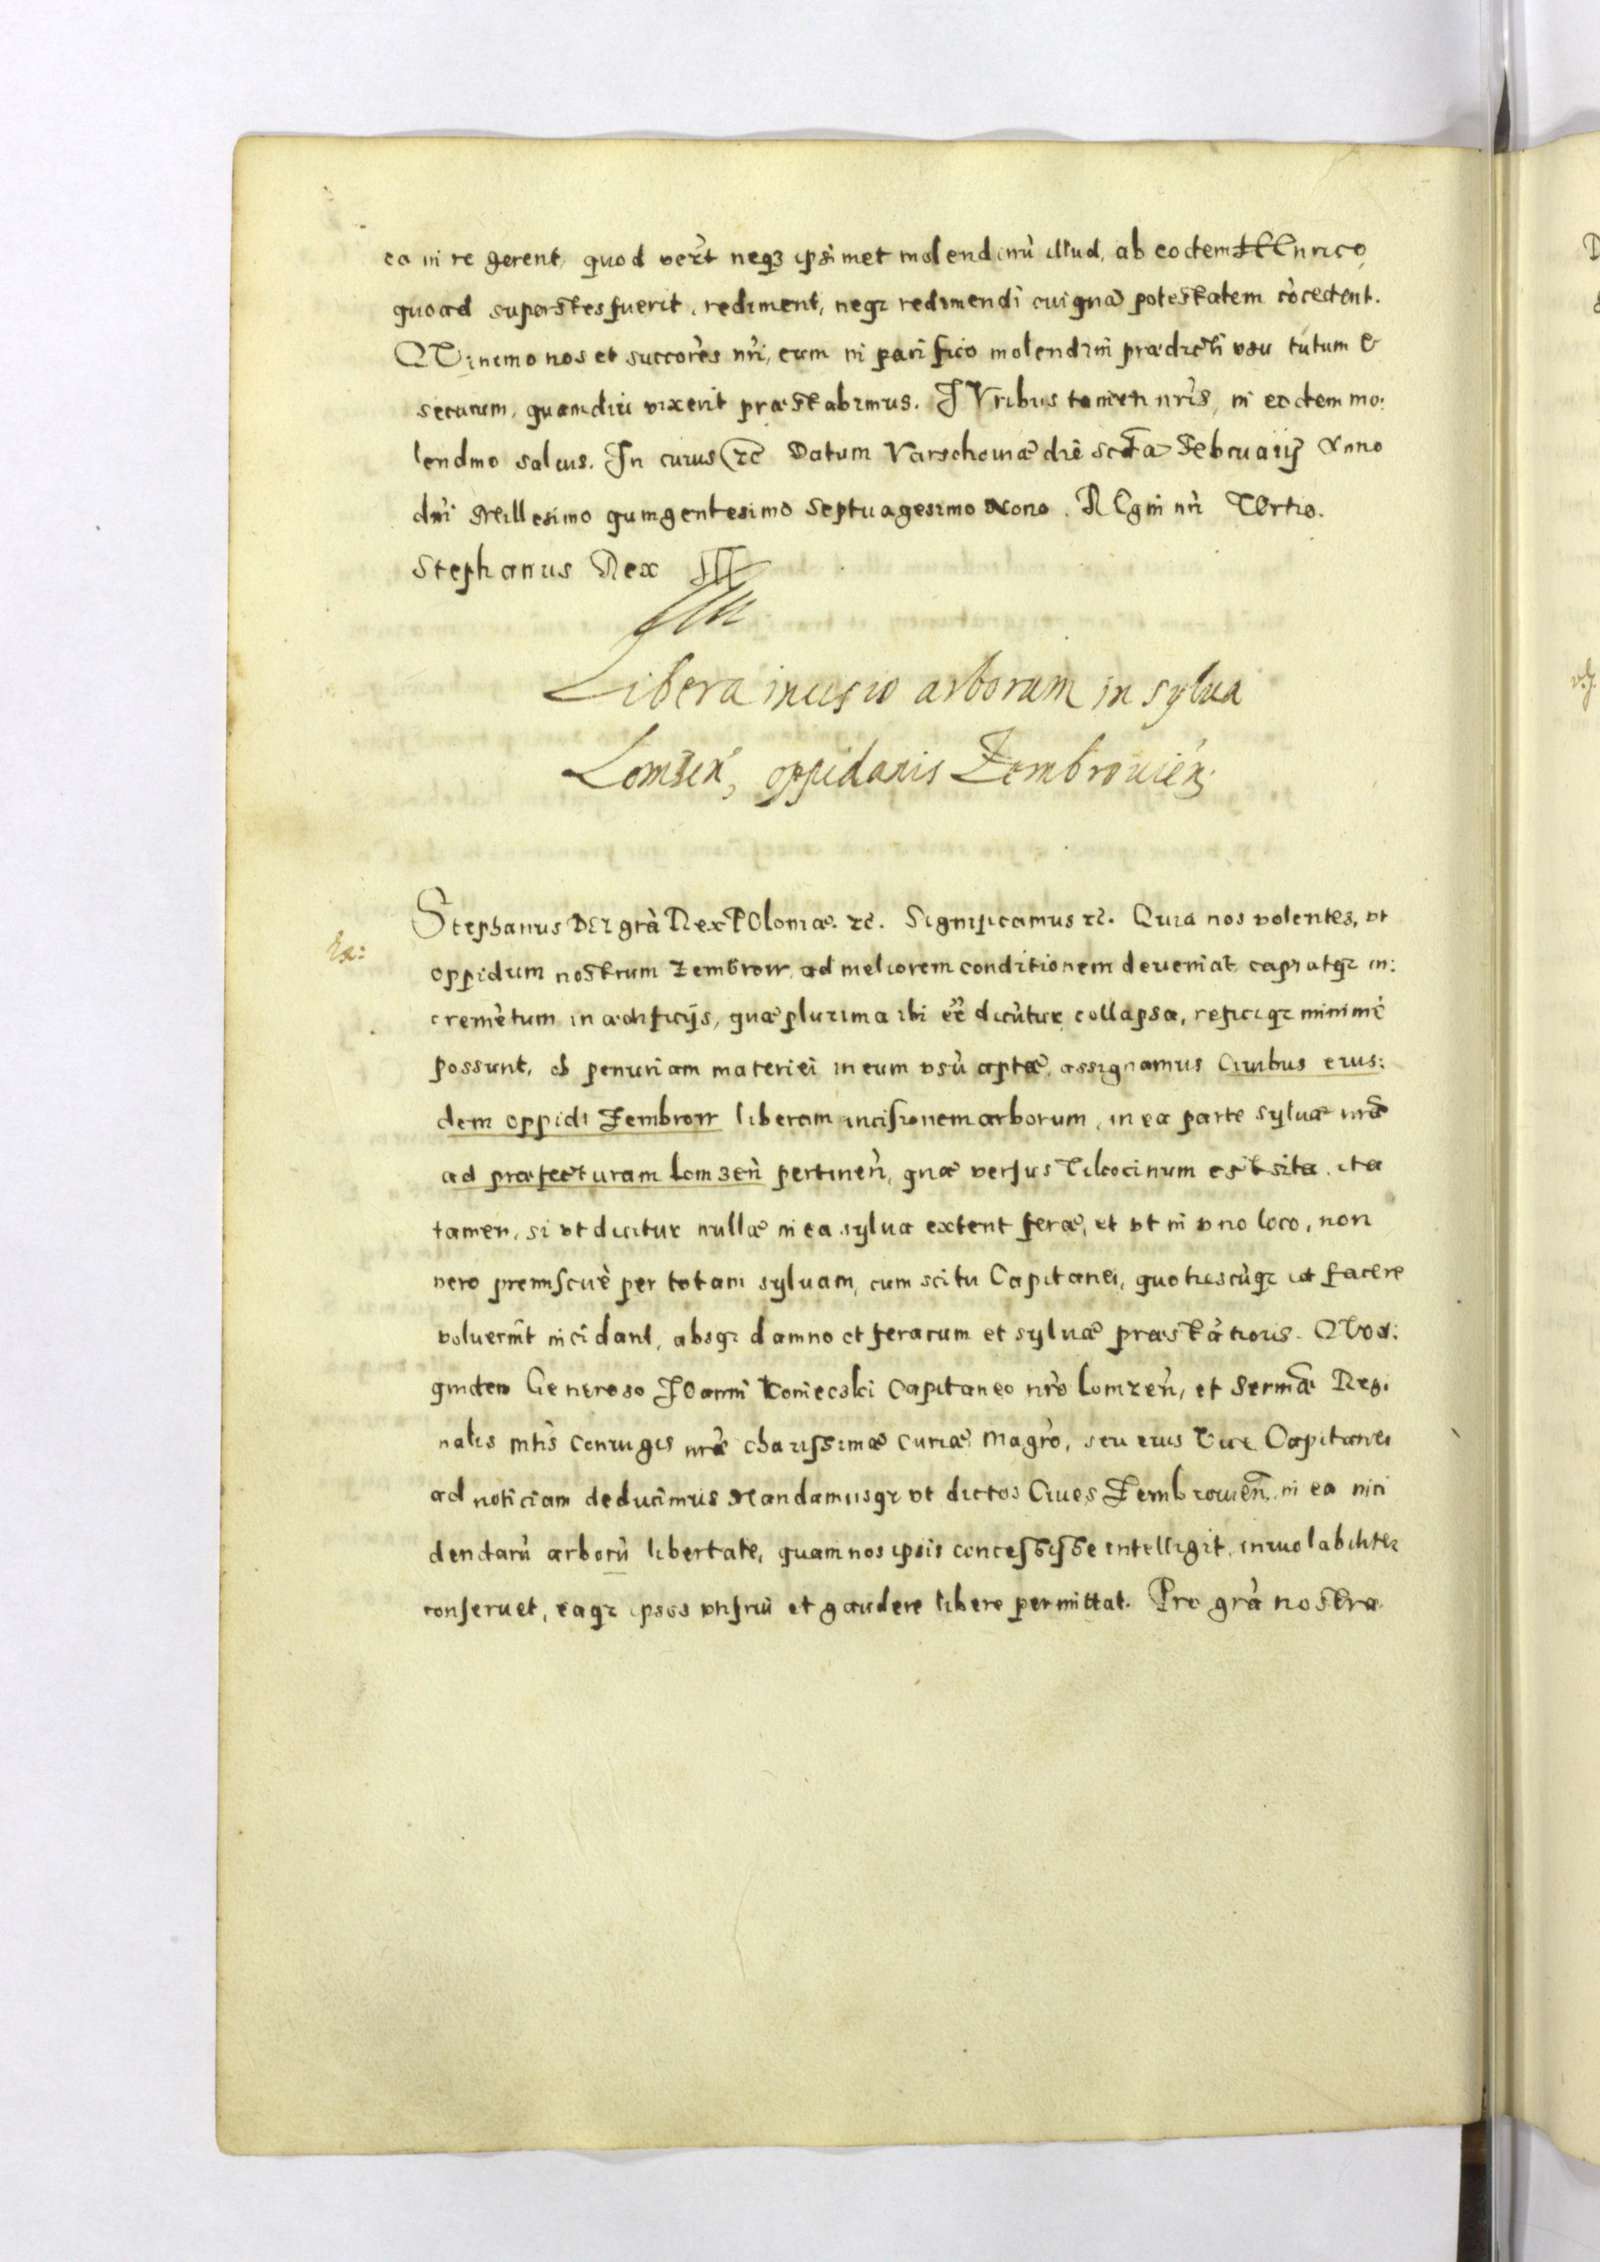 ea in re gerent, quod vert neq3 ipsimet molendinù illud, ab eodem HEnrico,
quoad superstes fuerit, rediment, neqз redimendi cuiquā potestatem còcedent.
QVinimo nos et succorès nrì, eum in pacifico molendini prædicti vsu tutum &
securum, quamdiu vixerit præstabimus. IVribus tamen nrìs, in eodem mo:
lendino saluis. In cuius rc̄ Datum Varschouiæ die sexta Februarij Anno
dnì Millesimo quingentesimo Septuagesimo Nono. REgni nrì TErtio.
Stephanus Rex
Libera incisio arborum in sylua
Lomzen̄, oppidanis Zembrouien̄
Stephanus DEI grà Rex POloniæ. rc̄. Significamus rc̄. Quia nos volentes, vt
oppidum nostrum Zembrow, ad meliorem conditionem deueniat, capiatqз in:
cremètum in ædificijs, quæ plurima ibi eē dicùtur collapsa, reficiqз minimè
possunt, ob penuriam materiei in eum vsù aptæ, assignamus Ciuibus eius:
dem oppidi Zembrow liberam incisionem arborum, in ea parte syluæ nrǣ
ad præfecturam Lomzen̄ pertinen̄, quæ versus Tikocinum est sita, ita
tamen, si vt dicitur nullæ in ea sylua extent feræ, et vt in vno loco, non
vero promiscuè per totam syluam, cum scitu Capitanei, quotiescùqз id facere
voluerint incidant, absqз damno et ferarum et syluæ præstàtioris. QVod:
quidem Generoso IOanni Koniecski Capitaneo nrò Lomzen̄, et Sermǣ Regi
nalis mtìs Coniugis nrǣ charissimæ Curiæ Magrò, seu eius Vice Capitanei
ad noticiam deducimus Mandamusqз vt dictos Ciues Zembrouien̄. in ea inci
dendarù arborù libertate, quam nos ipsis concessisse intelligit, inuiolabiliter
conseruet, eaqз ipsos vti frui et gaudere libere permittat. Pro grà nostra